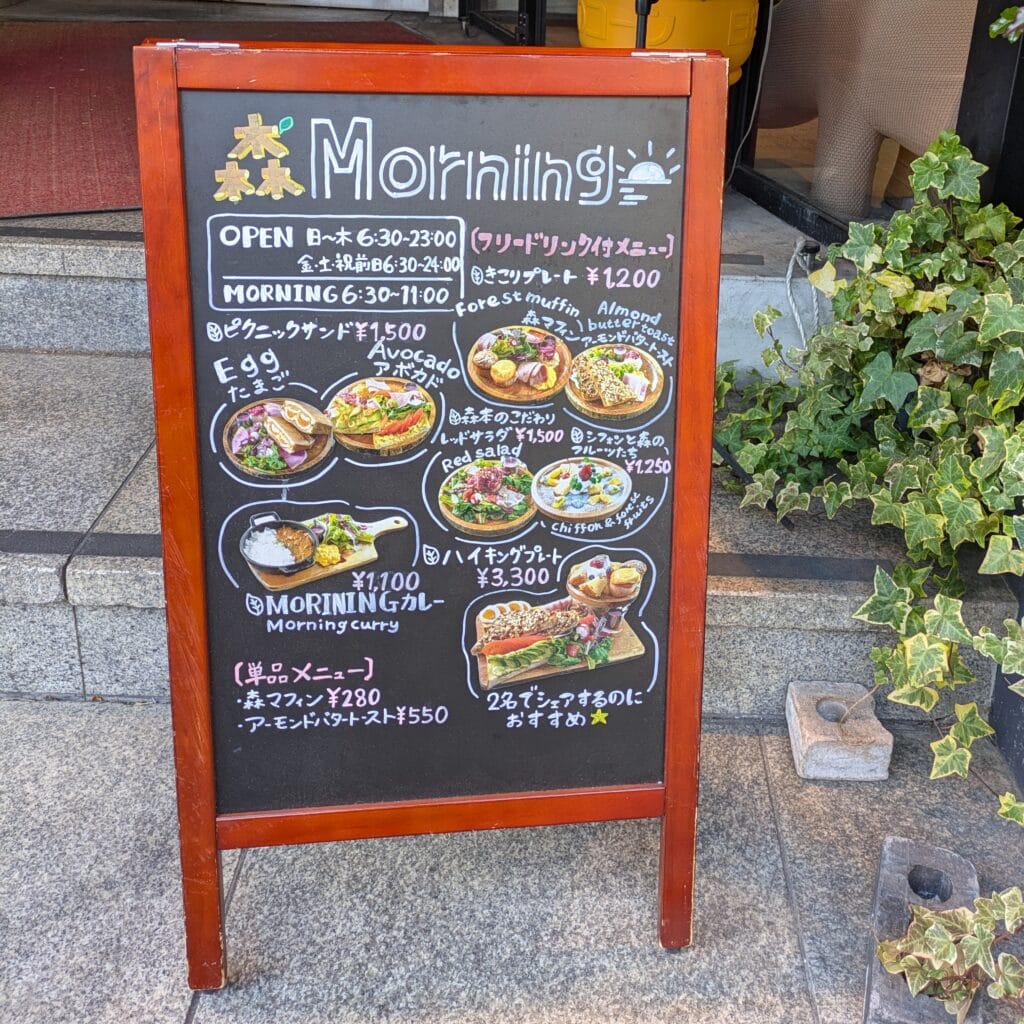 森 Morning
OPEN 日〜木 6:30~23:00
金・土・祝前日6:30~24:00
MORNING 6:30~11:00
(フリードリンク付メニュー)
きこりプレート ¥1,200
Forest muffin
森マフィン
Almond
butter toast
アーモンドバタートースト
ピクニックサンド¥1,500
Egg
たまご
Avocado
アボカド
森本のこだわり
レッドサラダ ¥1,500
Red salad
シフォンと森の
フルーツたち
¥1,250
Chiffon & forest
fruits
¥1,100
MORININGカレー
Morning curry
ハイキングプレート
¥3,300
2名でシェアするのに
おすすめ
(単品メニュー)
・森マフィン ¥280
・アーモンドバタートースト¥550